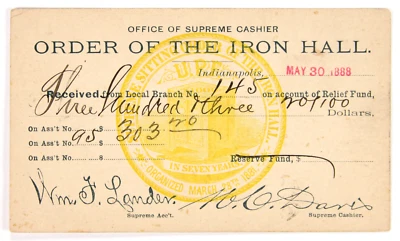 OFFICE OF SUPREME CASHIER
ORDER OF THE IRON HALL.
Indianapolis, MAY 30 1888
Received from Local Branch No. 145 on account of Relief Fund,
Three Hundred & three 20/100 Dollars.
On Ass't No. 95 $ 303.20
On Ass't No. $
On Ass't No. $ Reserve Fund, $
Wm. F. Lander. M. C. Davis
Supreme Acc't. Supreme Cashier.
SITTING OF THE IRON HALL.
IN SEVEN YEARS
ORGANIZED MARCH